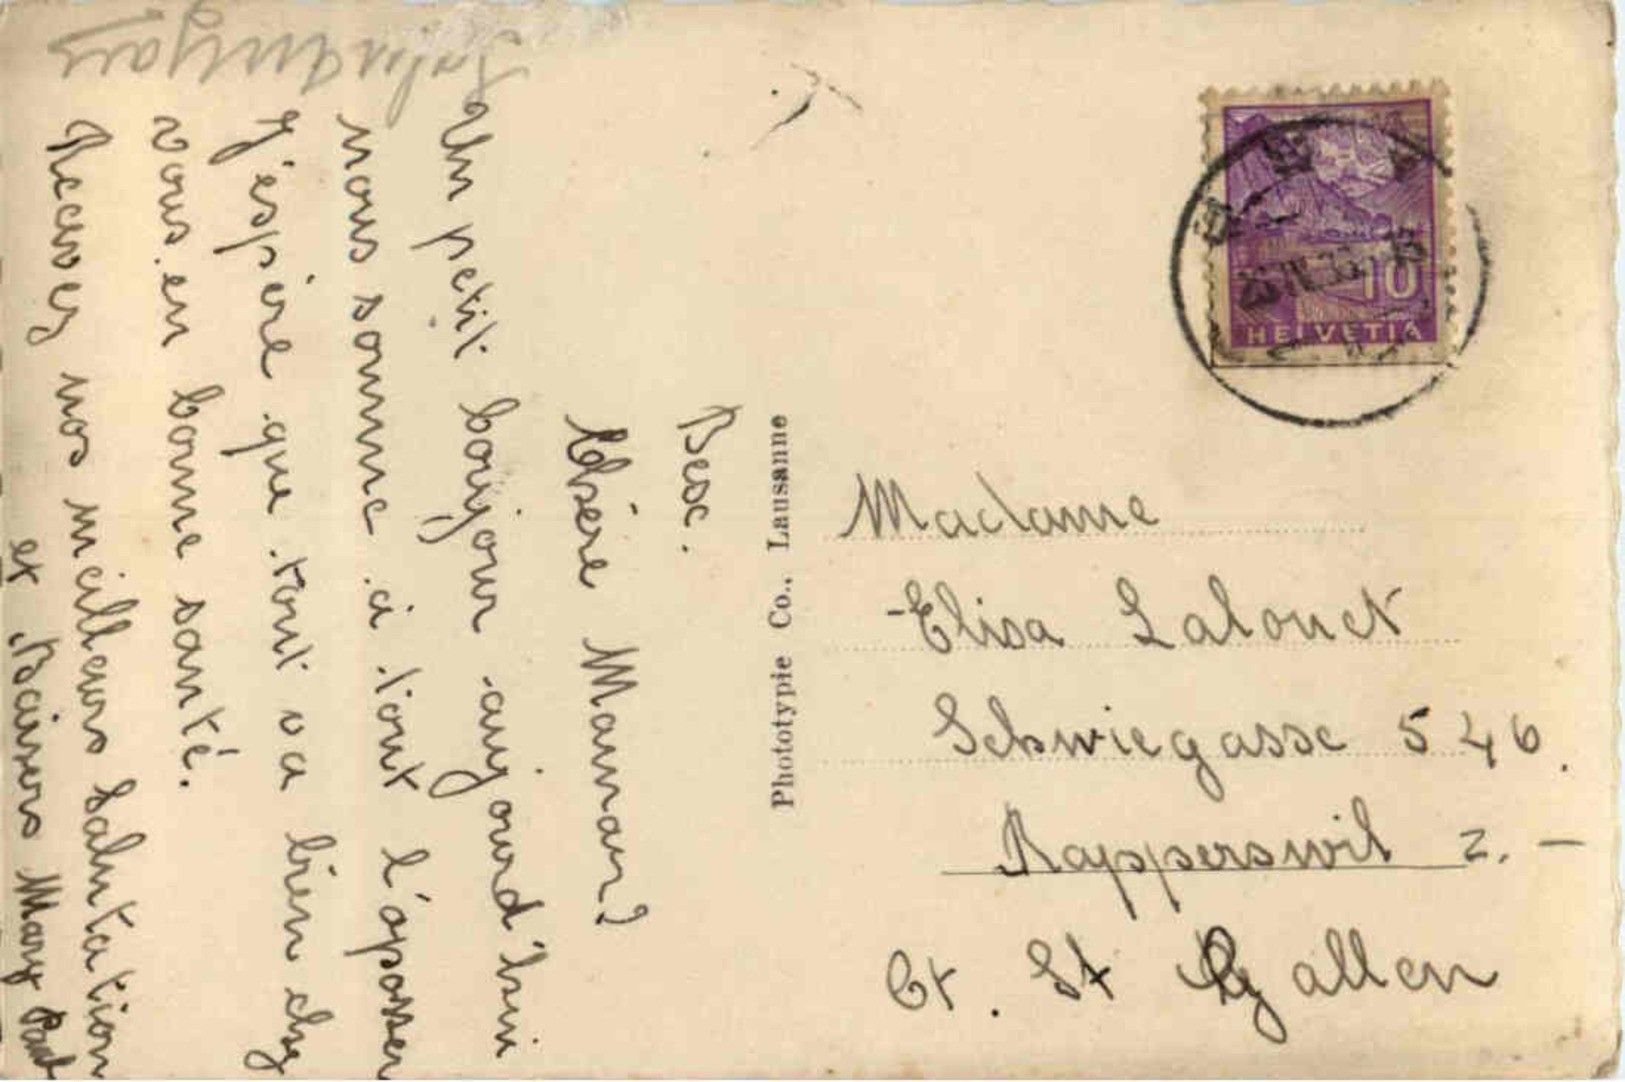 Bex.
Chère Maman?
Un petit bonjour aujourd'hui
nous somme à tout l'oposser
J'éspère que tout va bien chez
vous en bonne santé.
Recevez nos meilleurs salutation
et Baisers Mary Paul
Phototypie Co., Lausanne
10
HELVETIA
Madame
Elisa Lalouet
Schmiegasse 546.
Rapperswil
Ct. St Gallen